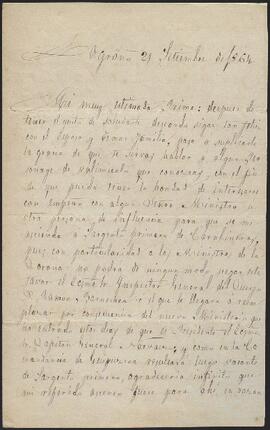 Logroño 21 Setiembre de 1864
Mi muy estimada Prima: despues de
tener el gusto de saludarte deseando sigas tan feliz
con el Esposo y demas familia, paso a suplicarte
la gracia de que te sirvas hablar a algun Per
sonage de valimiento que conozcas, con el fin
de que pueda tener la bondad de interesarse
con empeño con algun Señor Ministro u
otra persona de influencia para que se me
ascienda a Sargento primero de Carabineros,
pues con particularidad a los Ministros de la
Corona no podra de ningun modo negar este
favor el Escmo Sr. Inspector General del Cuerpo
D. Ramon o el que le llegara a reem
plazar por consecuencia del nuevo Ministerio que
ha entrado estos dias de que es Presidente el Escmo
Sr. Capitan General Narvaez, y como en la Co
mandancia de Guipuzcoa resultará luego vacante
de Sargento primero, agradeceria infinito que
mi referido ascenso fuese para ahi, en razon